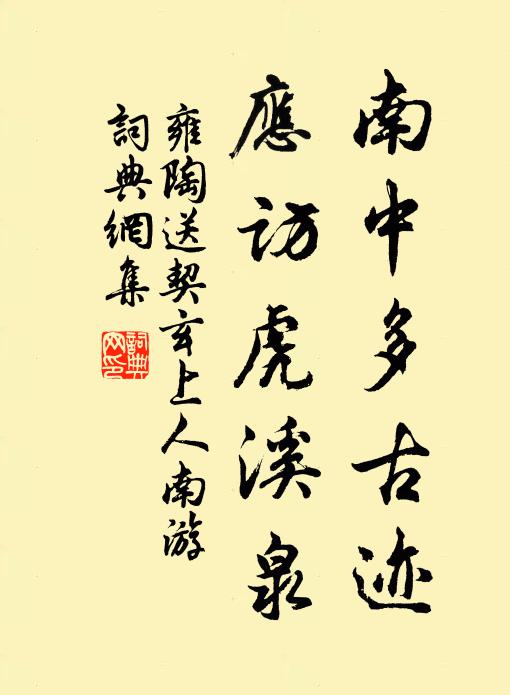 南中多古迹
應訪虎溪泉
雍陶送契玄上人南游
詞典網集
詞典
网印